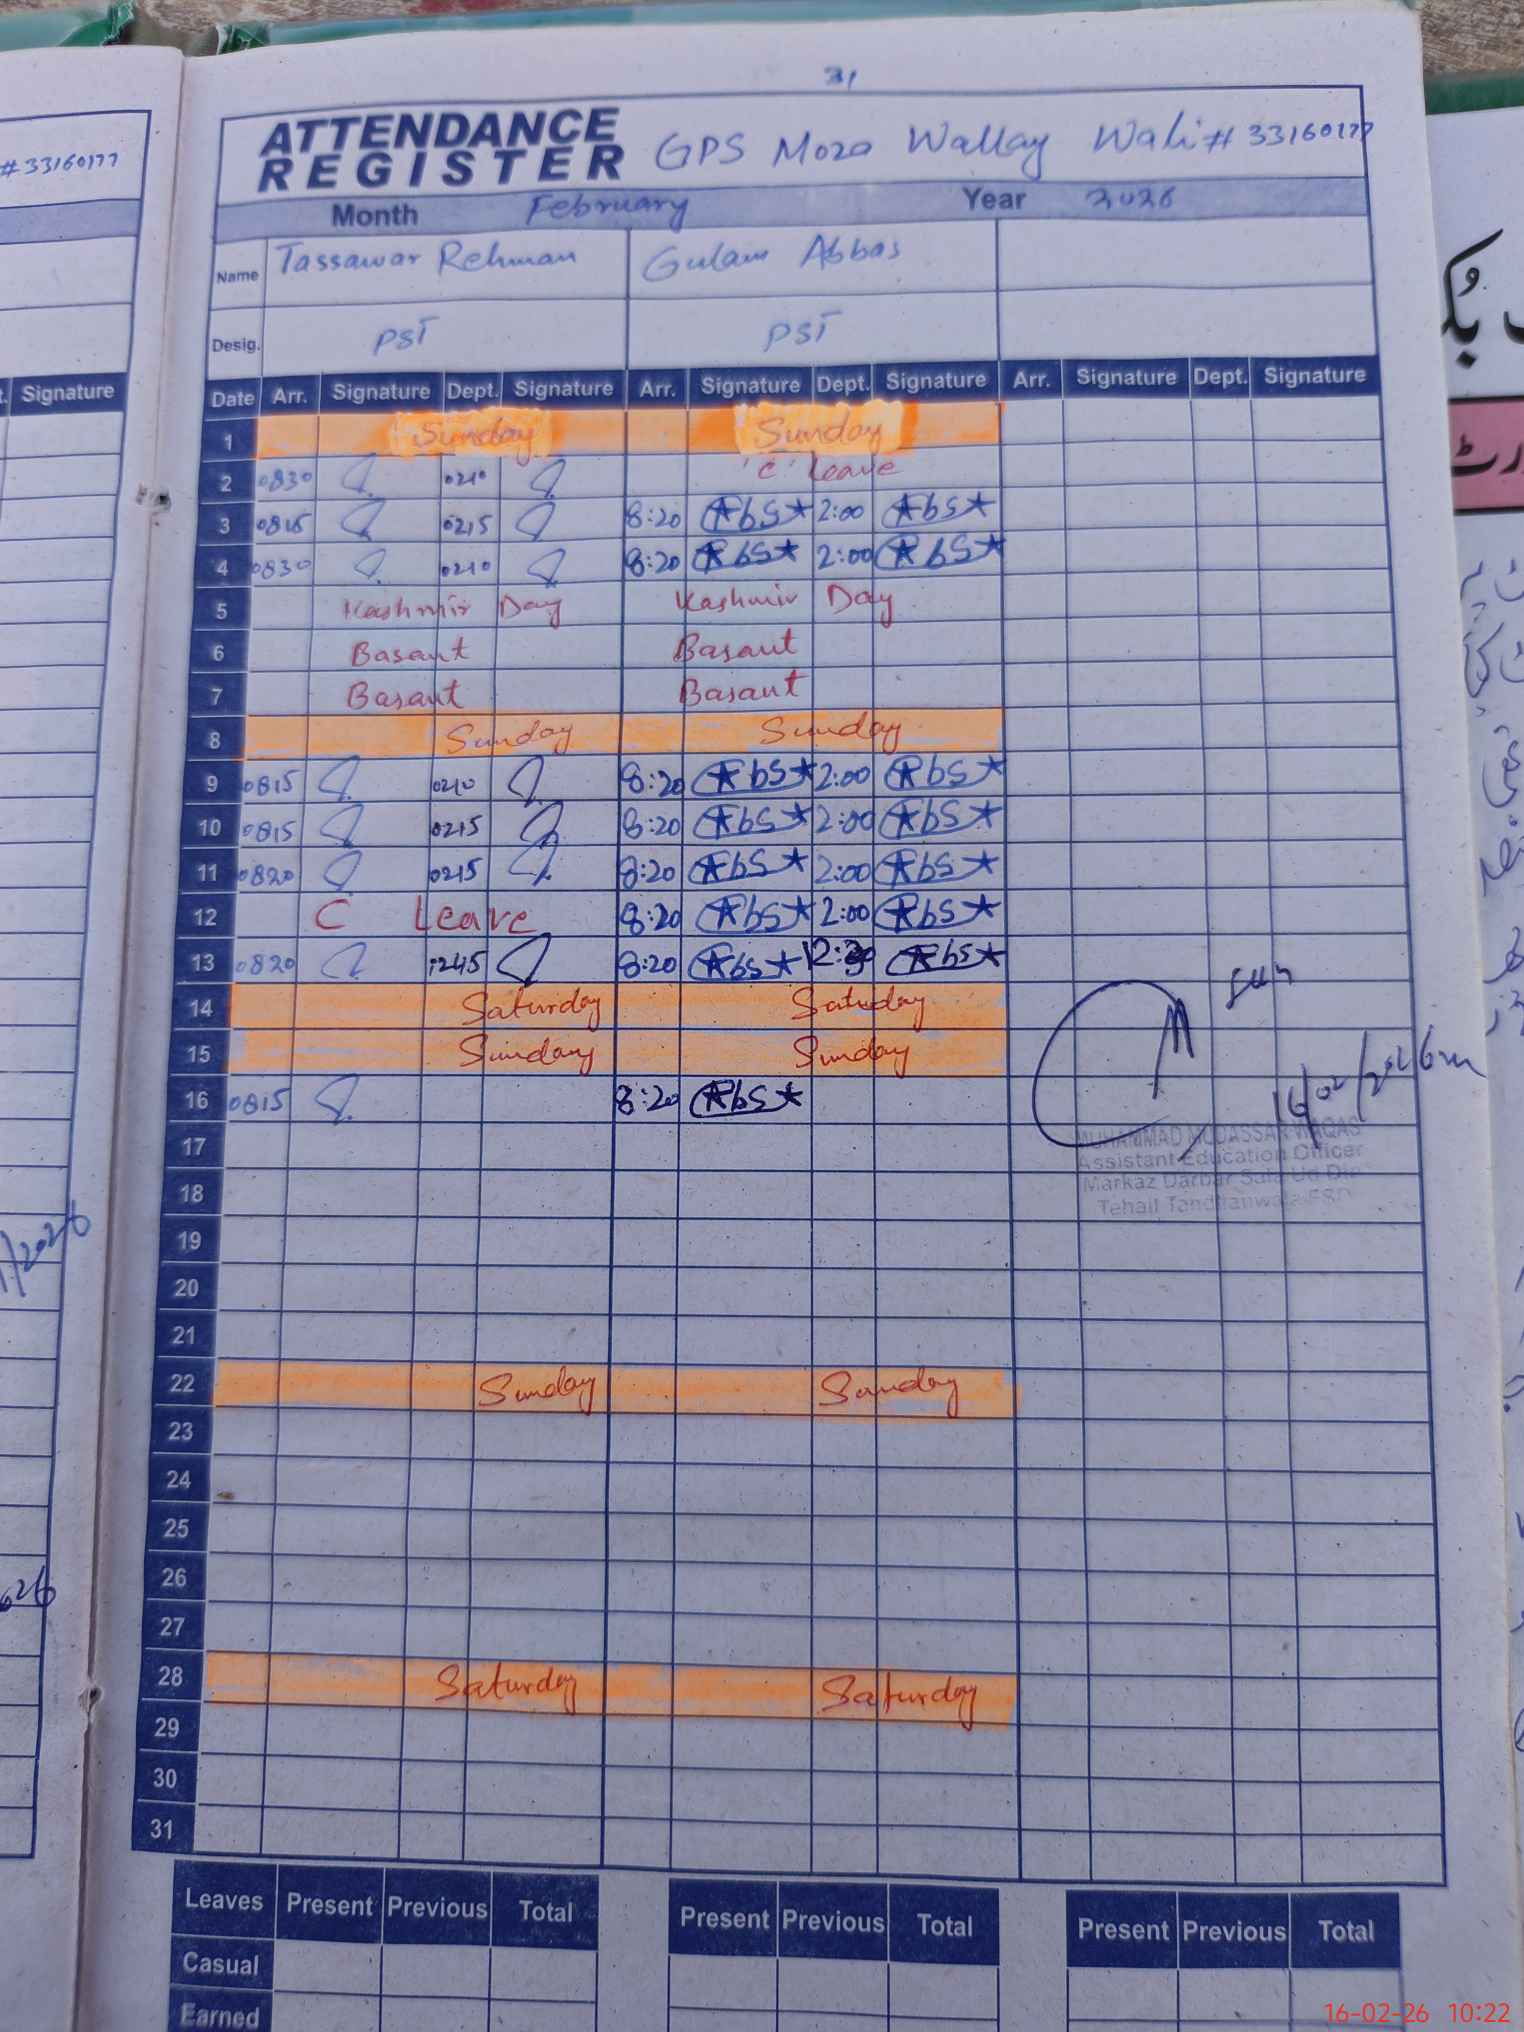 31
ATTENDANCE REGISTER GPS Moza Wallay Wali # 33160177
# 33160177
Month February Year 2026
Name Tassawar Rehman Gulam Abbas
Desig. PST PST
Signature
Date Arr. Signature Dept. Signature Arr. Signature Dept. Signature Arr. Signature Dept. Signature
1 Sunday Sunday
2 0830 0210 'C' Leave
3 0815 0215 8:20 Abs 2:00 Abs
4 0830 0210 8:20 Abs 2:00 Abs
5 Kashmir Day Kashmir Day
6 Basant Basant
7 Basant Basant
8 Sunday Sunday
9 0815 0210 8:20 Abs 2:00 Abs
10 0815 0215 8:20 Abs 2:00 Abs
11 0820 0215 8:20 Abs 2:00 Abs
12 C Leave 8:20 Abs 2:00 Abs
13 0820 1245 8:20 Abs 12:30 Abs
14 Saturday Satuday
15 Sunday Sunday
16 0815 8:20 Abs
16/02/2026
MUHAMMAD MUDASSAR WAQAS
Assistant Education Officer
Markaz Darbar Ud Din
Tehsil Tandlianwala FSD
17
18
19
20
21
22 Sunday Sunday
23
24
25
26
27
28 Saturday Saturday
29
30
31
Leaves Present Previous Total Present Previous Total Present Previous Total
Casual
Earned
16-02-26 10:22